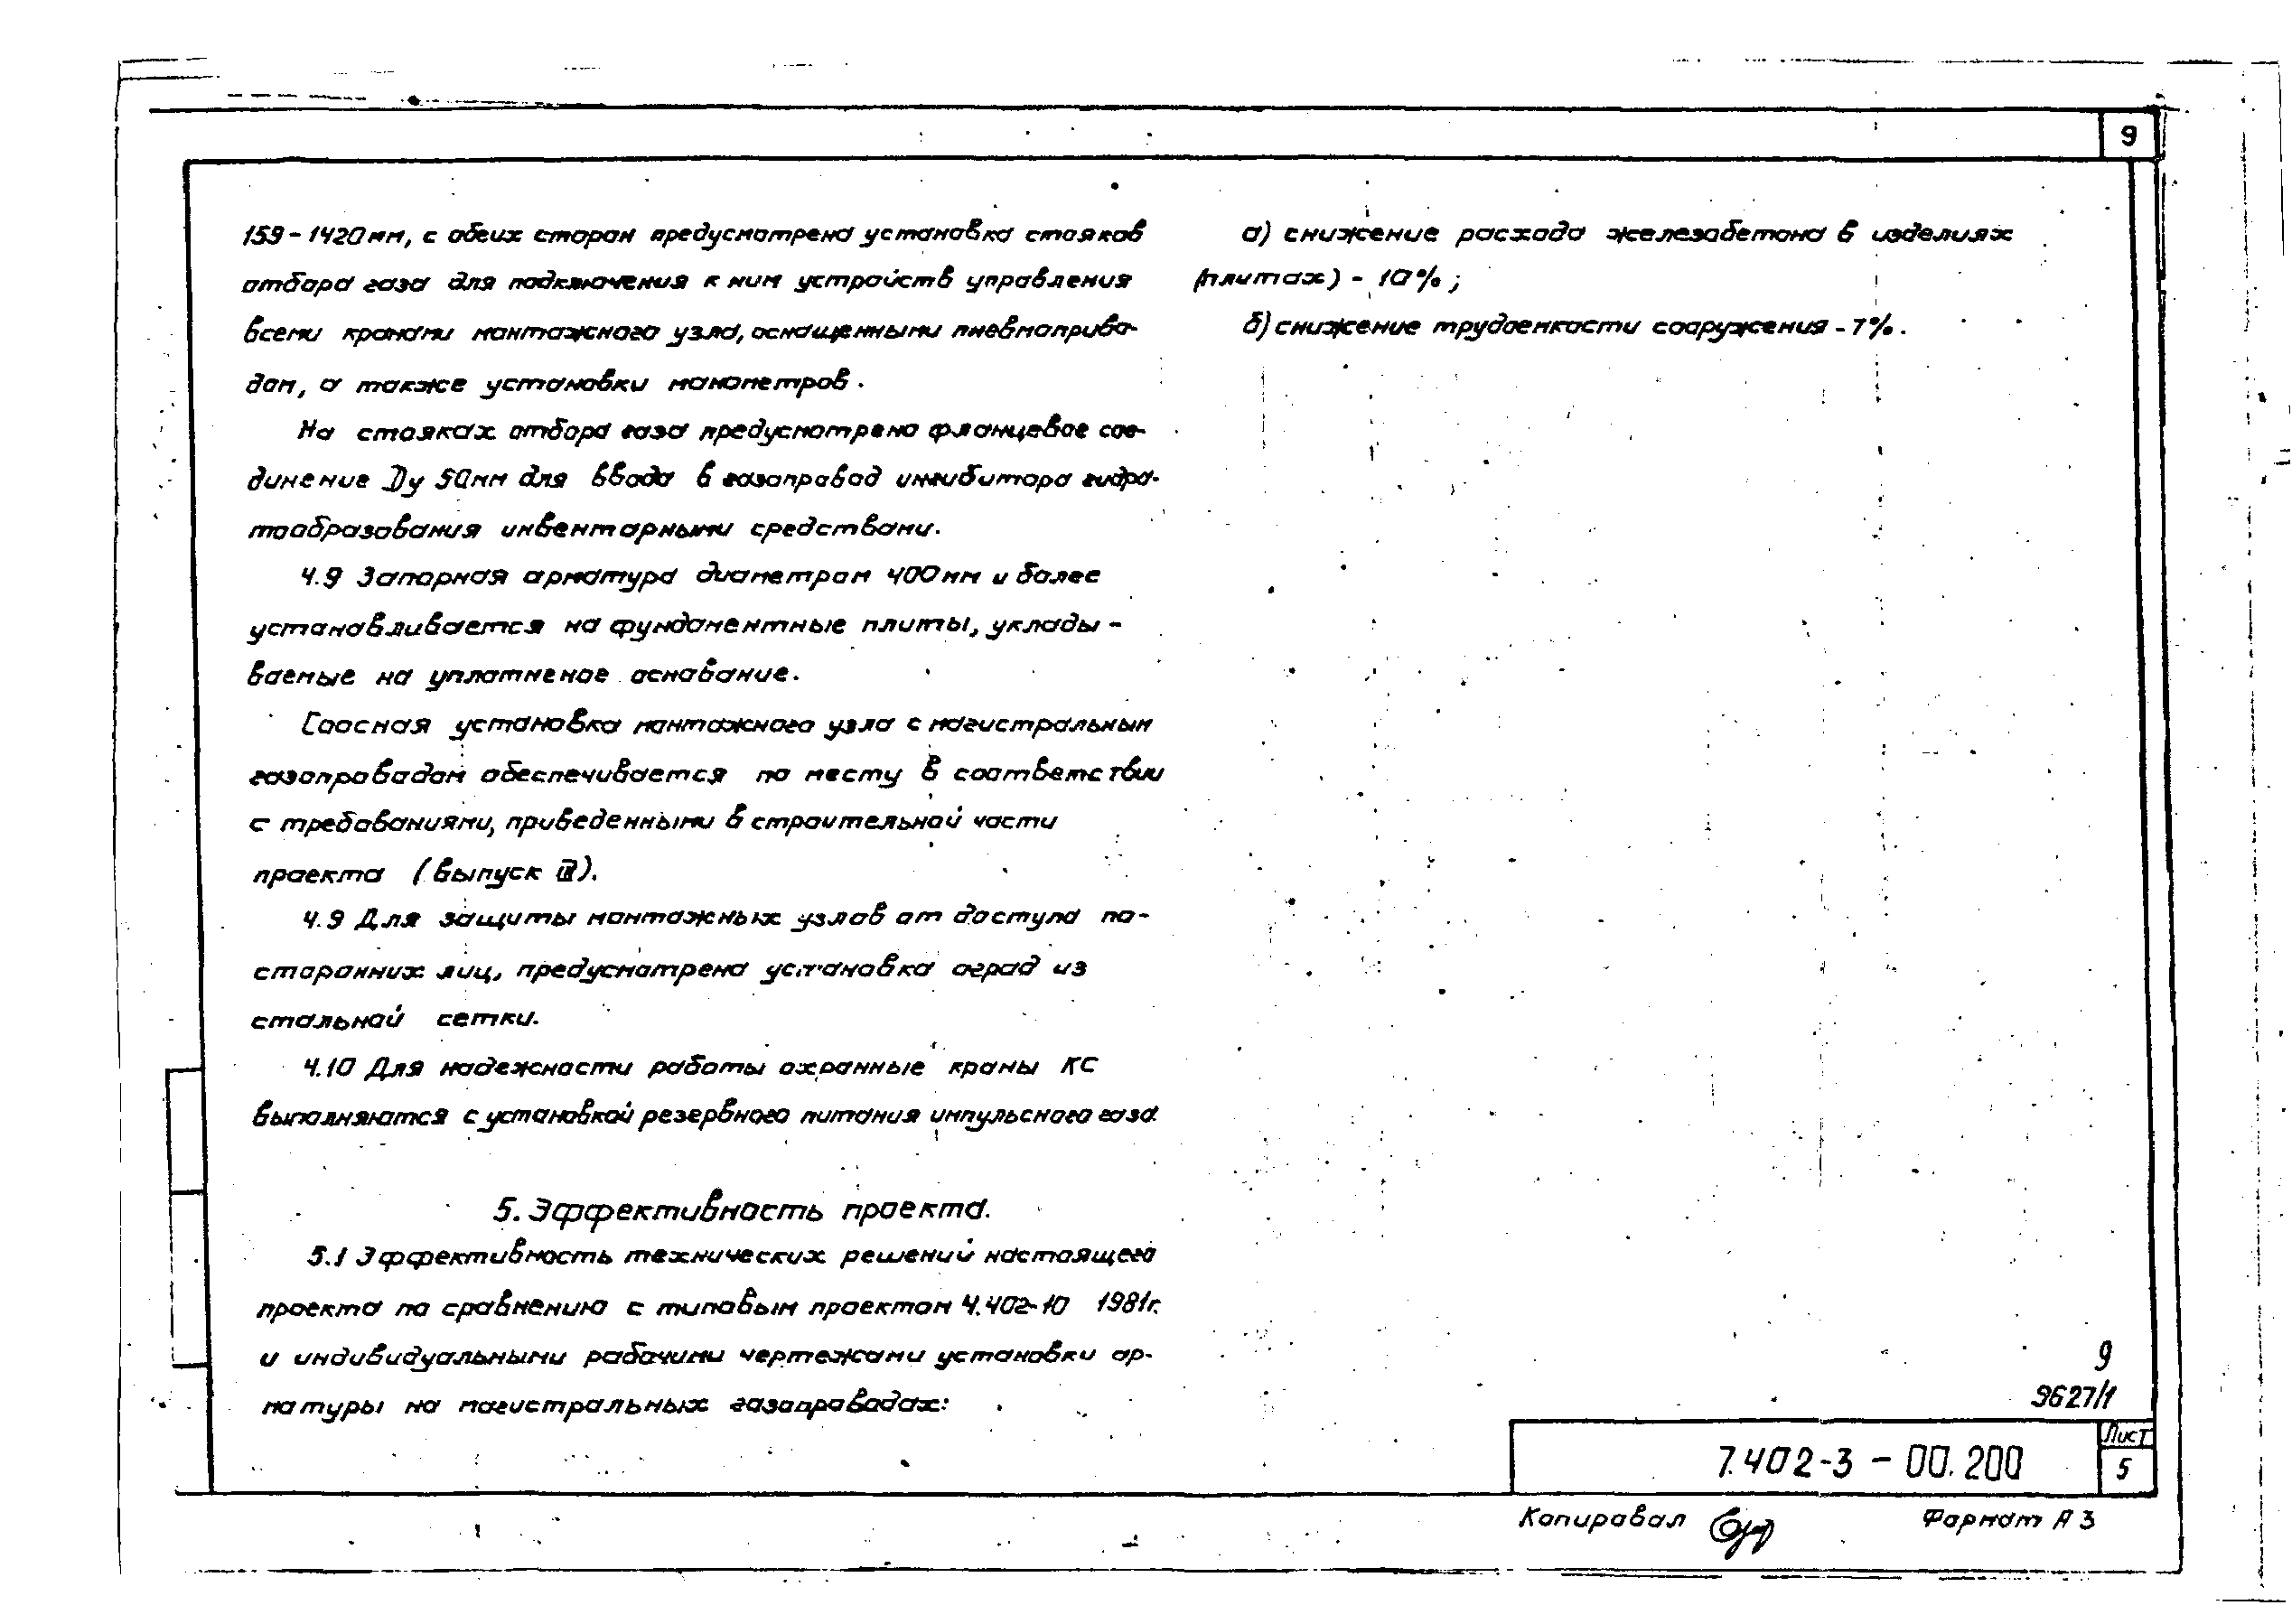 9
159-1420мм, с обеих сторон предусмотрена установка стояков
отбора газа для подключения к ним устройств управления
всеми кранами монтажного узла, оснащенными пневмоприво-
дом, а также установки манометров.
На стояках отбора газа предусмотрено фланцевое сое-
динение Ду 50мм для ввода в газопровод ингибитора гидра-
тообразования инвентарными средствами.
4.9 Запорная арматура диаметром 400мм и более
устанавливается на фундаментные плиты, уклады-
ваемые на уплотненое основание.
Соосная установка монтажного узла с магистральным
газопроводом обеспечивается по месту в соответствии
с требованиями, приведенными в строительной части
проекта (выпуск III).
4.9 Для защиты монтажных узлов от доступа по-
сторонних лиц, предусмотрена установка оград из
стальной сетки.
4.10 Для надежности работы охранные краны КС
выполняются с установкой резервного питания импульсного газа
5. Эффективность проекта.
5.1 Эффективность технических решений настоящего
проекта по сравнению с типовым проектом 4.402-10 1981г.
и индивидуальными рабочими чертежами установки ар-
матуры на магистральных газопроводах:
а) снижение расхода железобетона в изделиях
(плитах) - 10%;
б) снижение трудоемкости сооружения - 7%.
9
9627/1
7.402-3 - 00.200
Лист
5
Копировал
Формат А3